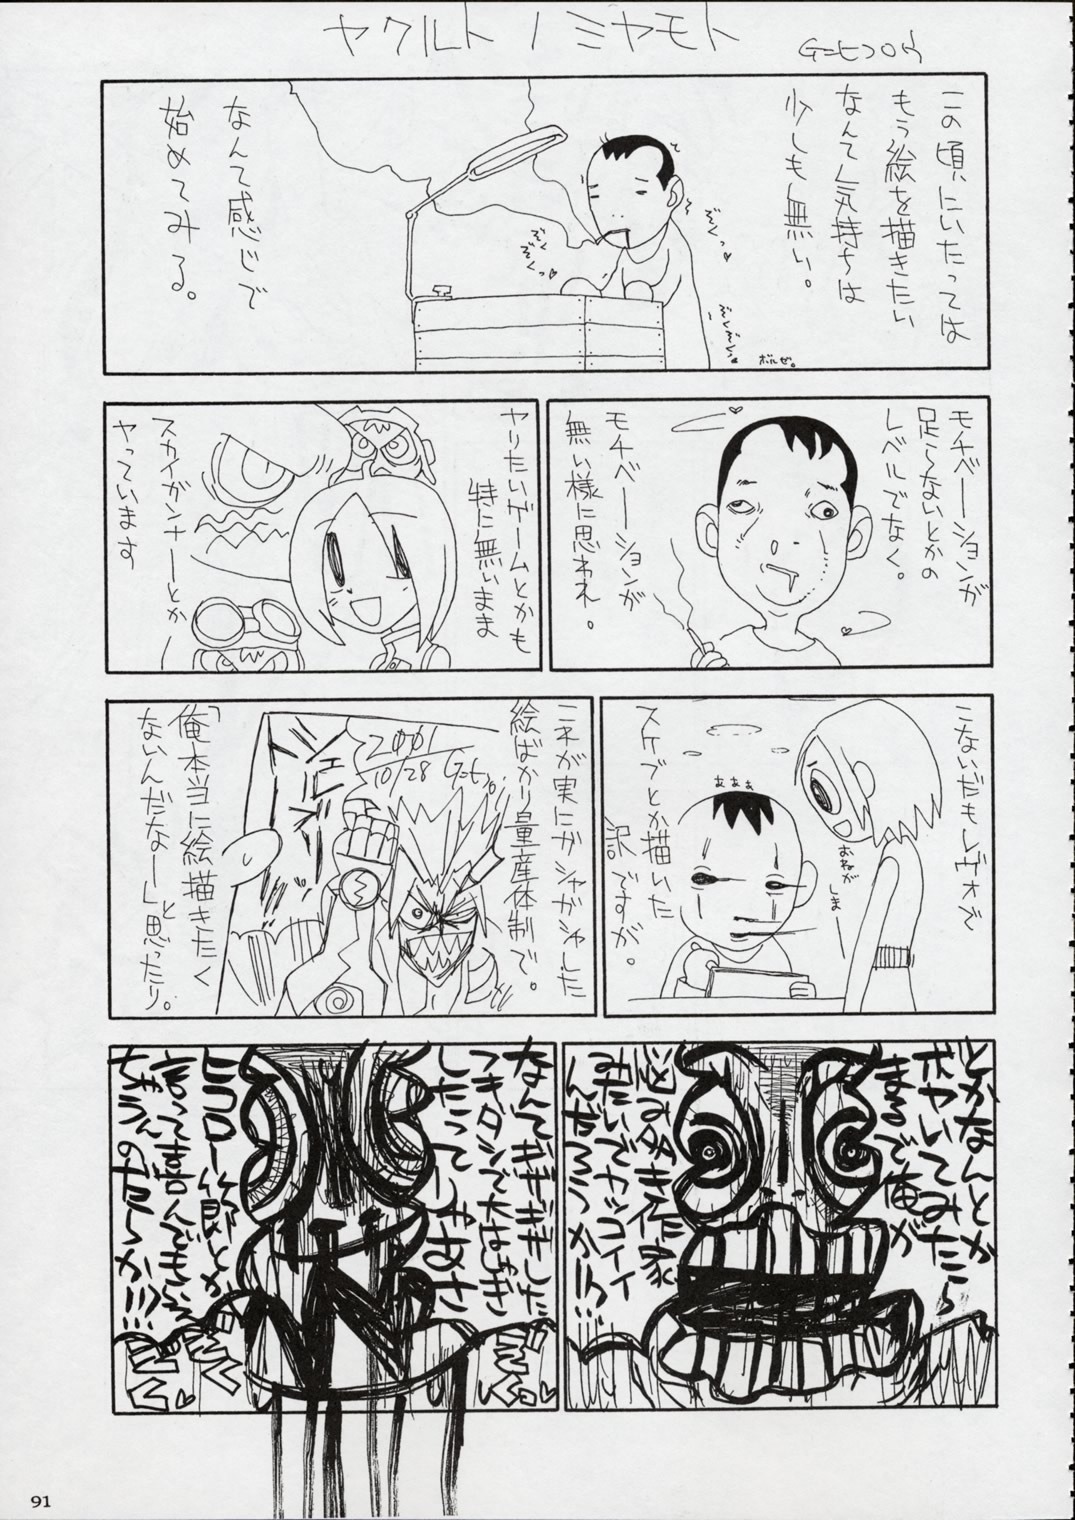 ヤクルトノミヤモト
この頃にいたっては
もう絵を描きたい
なんて気持ちは
少しも無い。
なんて感じで
始めてみる。
ぞくっ
ぞくぞくっ
ボルゼ。
モチベーションが
足らないとかの
レベルでなく。
モチベーションが
無い様に思われ。
ヤリたいゲームとかも
特に無いまま
スカイガンナーとか
ヤっています
こないだもレヴォで
スケブとか描いた
訳ですが。
あああ
おねがい
しま
これが実にガシャガシャした
絵ばかり量産体制で。
「俺本当に絵描きたく
ないんだなー」と
思ったり。
2001
10/28
とかなんとか
ボヤいてみたら
まるで俺が
悩み多き作家
みたいでカッコイイ
んだろうか!!
なんでぎぎぎした
フキダシで大はしゃぎ
したってしゃあさ
ちゃうのやろか!!!
91